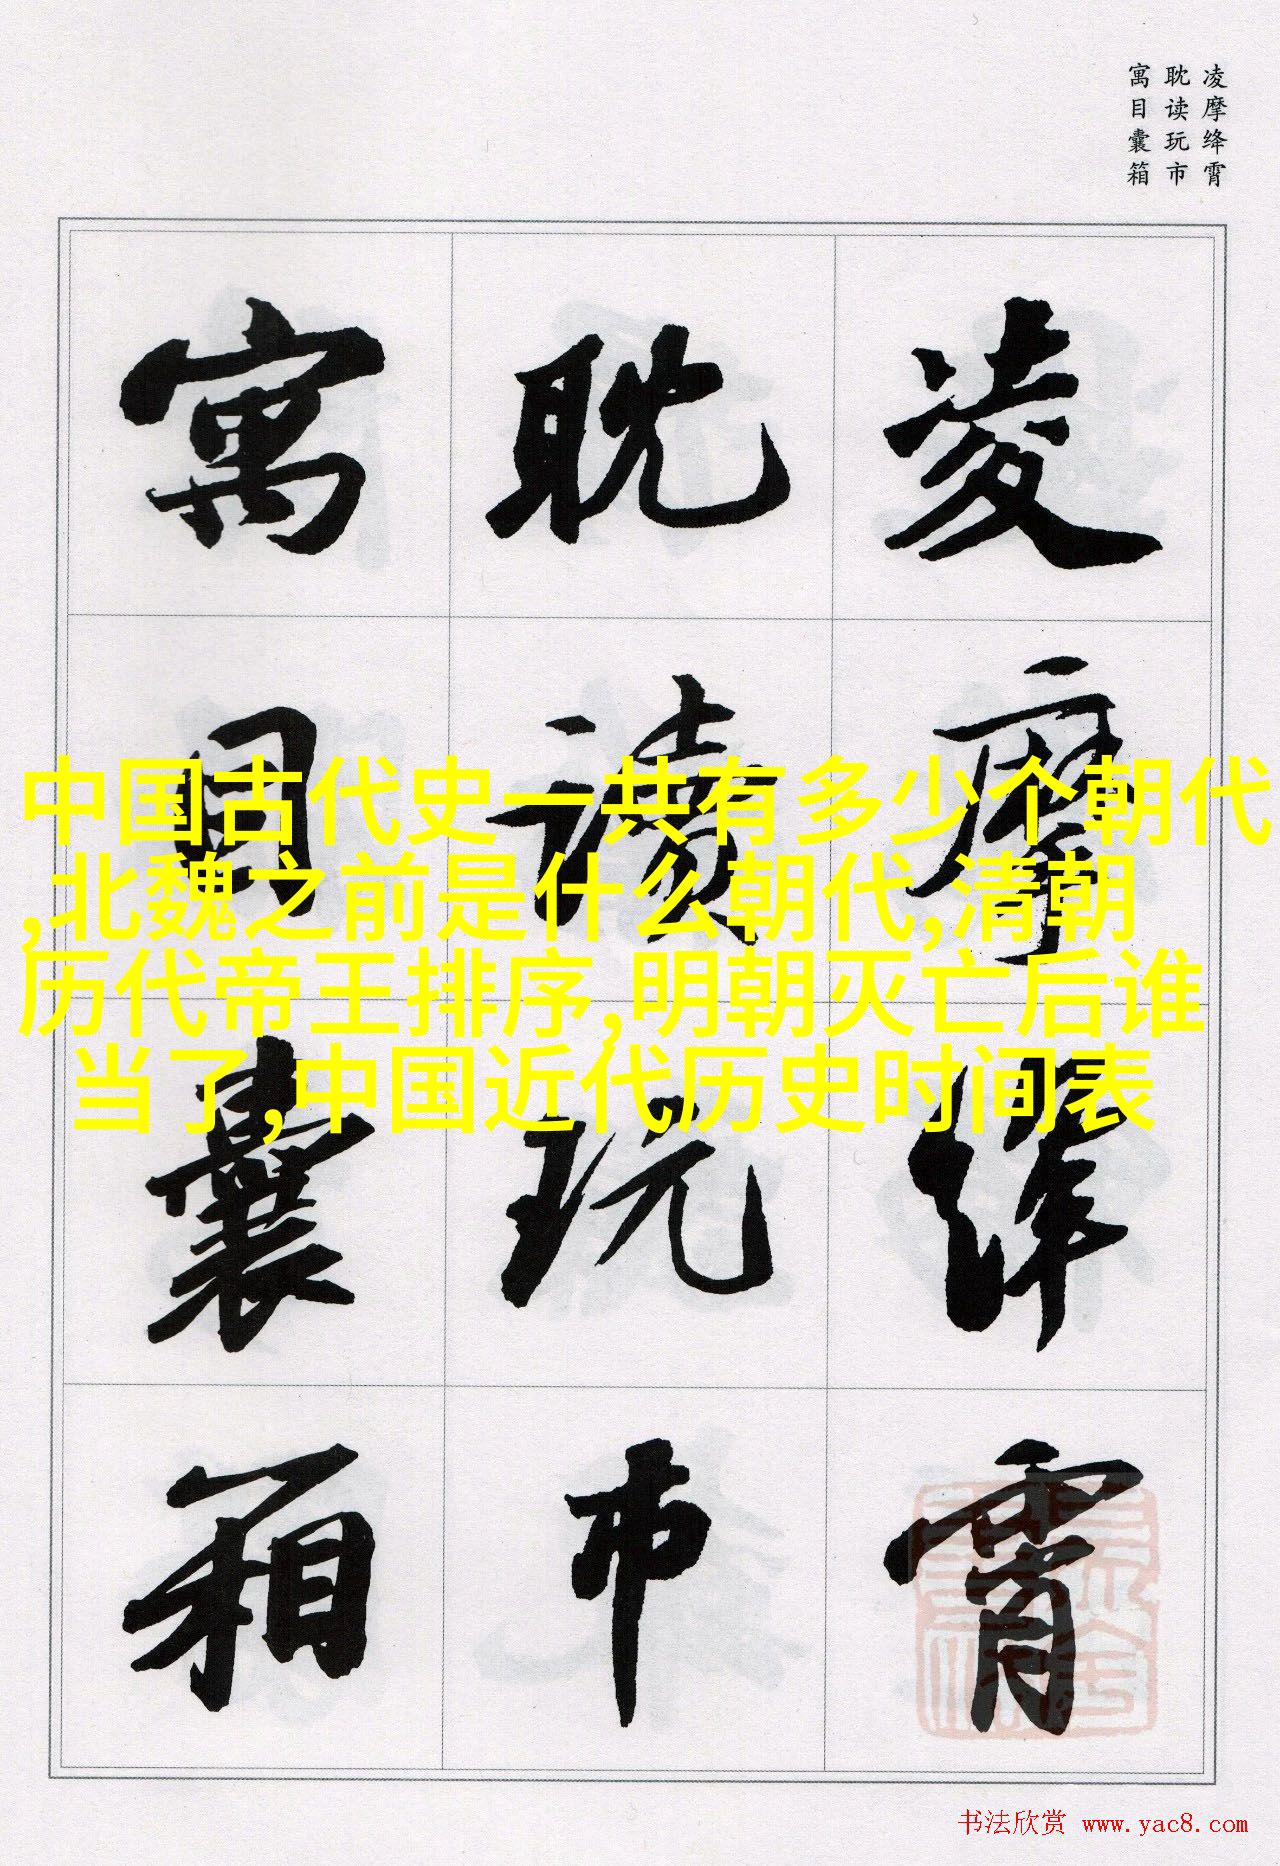 凌摩绛霄
耽读玩市
寓目囊箱
凌摩绛霄
耽读玩市
寓目囊箱
中国古代史一共有多少个朝代
,北魏之前是什么朝代,清朝
历代帝王排序,明朝灭亡后谁
当了,中国近代历史时间表
书法欣赏 www.yac8.com